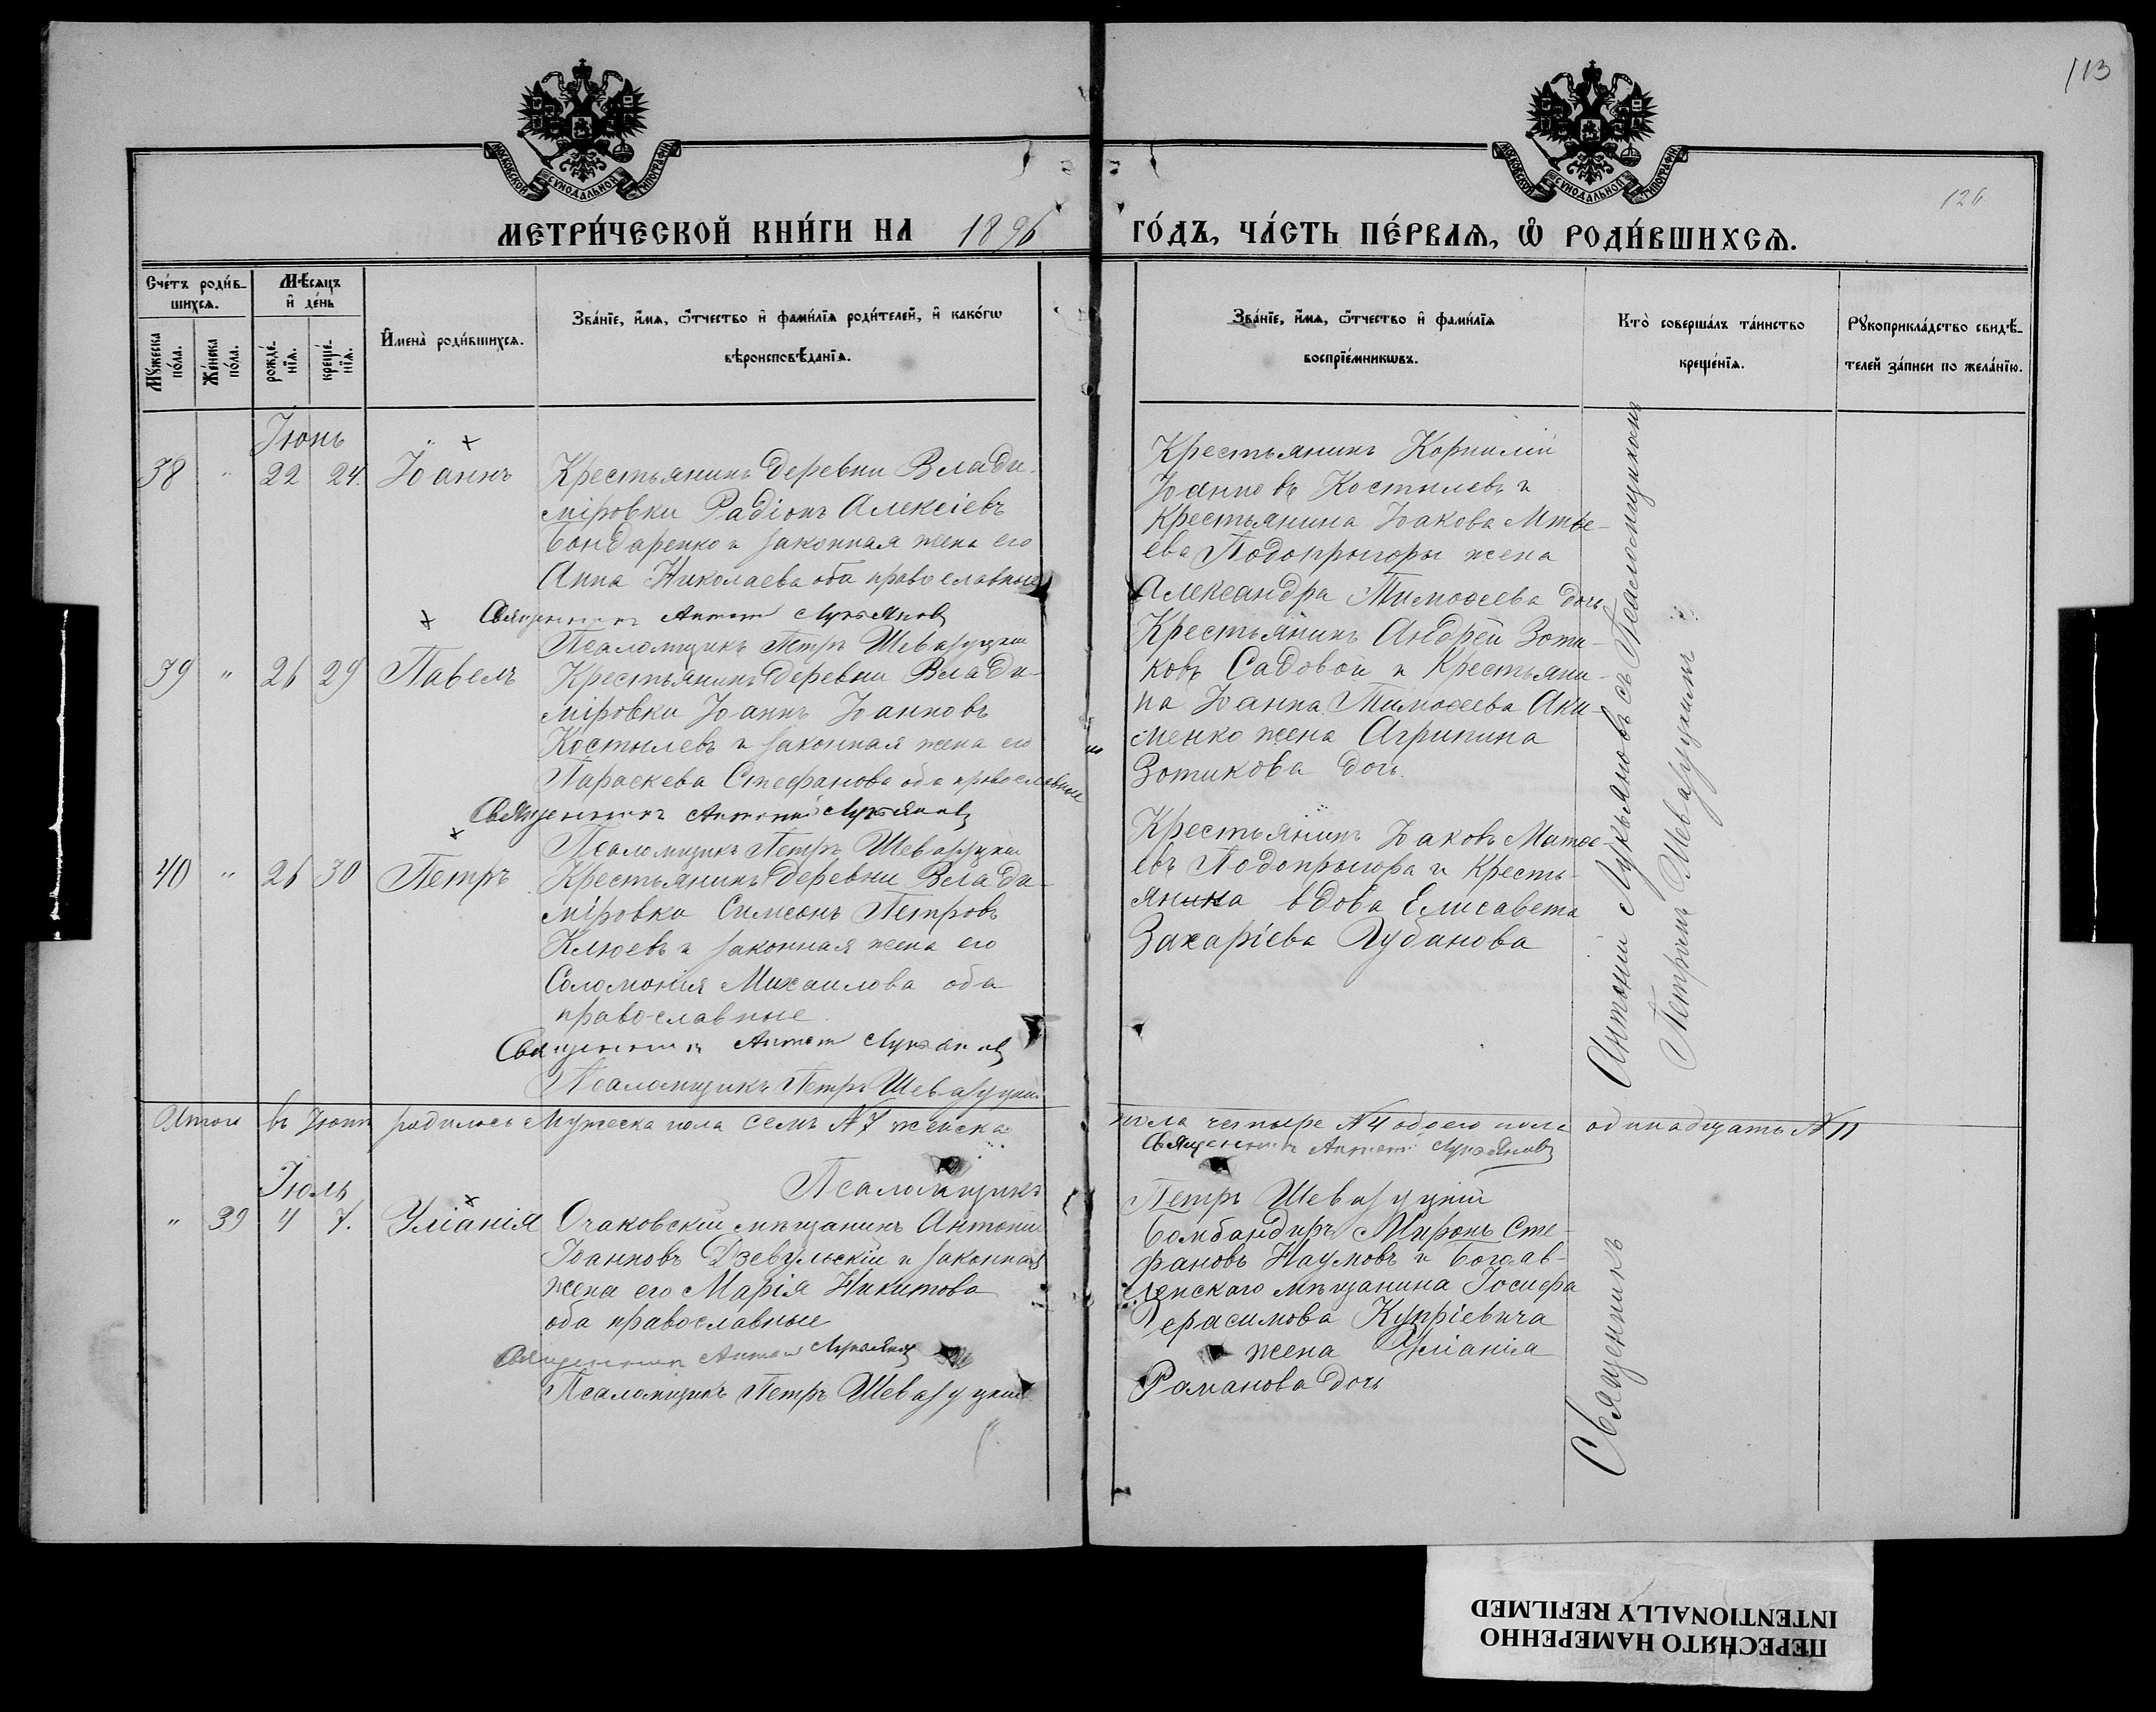 113
126
МОСКОВСКОЙ СѴНОДАЛЬНОЙ ТИПОГРАФІИ
МОСКОВСКОЙ СѴНОДАЛЬНОЙ ТИПОГРАФІИ
МЕТРИ́ЧЕСКОЙ КНИ́ГИ НА 1896 ГО́ДЪ, ЧА́СТЬ ПЕ́РВАЯ, Ѡ РОДИ́ВШИХСЯ.
Сче́тъ роди́в-
шихся.
Мꙋ́жеска по́ла.
Же́нска по́ла.
Мѣ́сяцъ
и҆ де́нь
рожде́-
нїя.
креще́-
нїя.
И҆мена̀ роди́вшихся.
Зва́нїе, и҆́мя, ѻ҆́тчество и҆ фами́лїя роди́телей, и҆ како́гѡ
вѣроисповѣ́данїя.
Зва́нїе, и҆́мя, ѻ҆́тчество и҆ фами́лїя
воспрїе́мникѡвъ.
Кто̀ соверша́лъ та́инство
креще́нїя.
Рꙋкоприкла́дство свидѣ́-
телей за́писи по жела́нїю.
Іюнь
38 " 22 24. Іоаннъ
Крестьянинъ деревни Влади-
міровки Радіонъ Алексіевъ
Бондаренко и законная жена его
Анна Николаева оба православные
Священникъ Антоній Лукьяновъ
Псаломщикъ Петръ Шевазуцкій
Крестьянинъ Корнилій
Іоанновъ Костылевъ и
Крестьянина Іакова Мтѳе-
ева Подопрыгоры жена
Александра Тимоѳеева дочь
39 " 26 29 Павелъ
Крестьянинъ деревни Влади-
міровки Іоаннъ Іоанновъ
Костылевъ и законная жена его
Параскева Стефанова оба православные
Священникъ Антоній Лукьяновъ
Псаломщикъ Петръ Шевазуцкій
Крестьянинъ Андрей Зоти-
ковъ Садовой и Крестьяни-
на Іоанна Тимоѳеева Аки-
менко жена Агрипина
Зотикова дочь.
40 " 26 30 Петръ
Крестьянинъ деревни Влади-
міровки Симеонъ Петровъ
Клюевъ и законная жена его
Соломонія Михаилова оба
православные.
Священникъ Антоній Лукьяновъ
Псаломщикъ Петръ Шевазуцкій
Крестьянинъ Іаковъ Матѳе-
евъ Подопрыгора и Кресть-
янина вдова Елисавета
Захаріева Губанова
Итого въ Іюнѣ родилось Мужеска пола семь №7 женска пола четыре №4 обоего пола одинадцать №11
Священникъ Антоній Лукьяновъ
Псаломщикъ Петръ Шевазуцкій
Іюль
" 39 4 7. Уліанія
Очаковскій мѣщанинъ Антоній
Іоанновъ Дзевульскій и законная
жена его Марія Никитова
оба православные
Священникъ Антоній Лукьяновъ
Псаломщикъ Петръ Шевазуцкій
Бомбандиръ Миронъ Сте-
фановъ Наумовъ и Богояв-
ленскаго мѣщанина Іосифа
Герасимова Купріевича
жена Уліанія
Романова дочь
Священникъ Антоній Лукьяновъ съ Псаломщикомъ
Петромъ Шевазуцкимъ
ПЕРЕСНЯТО НАМЕРЕННО
INTENTIONALLY REFILMED